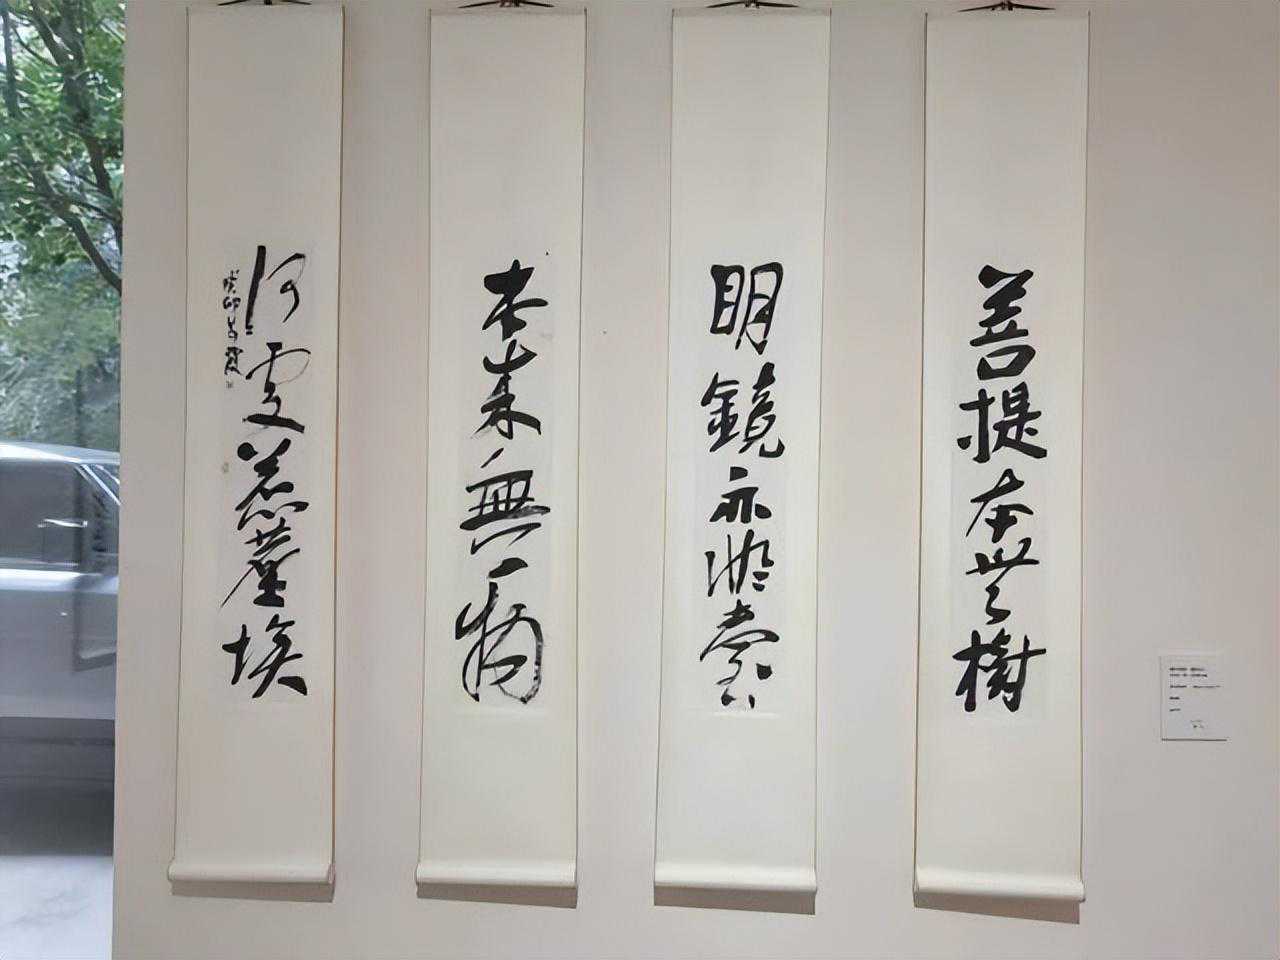 菩提本無樹
明鏡亦非臺
本來無一物
何處惹塵埃
癸卯